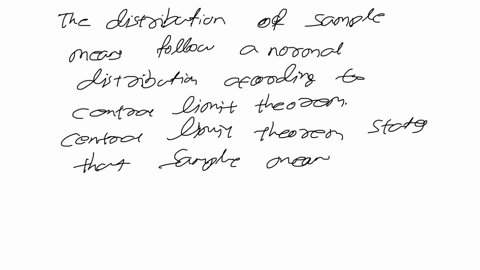 The distribution of sample
means follow a noronal
distribution acording to
contral limit theorem.
central limit theorem state
that sample mean